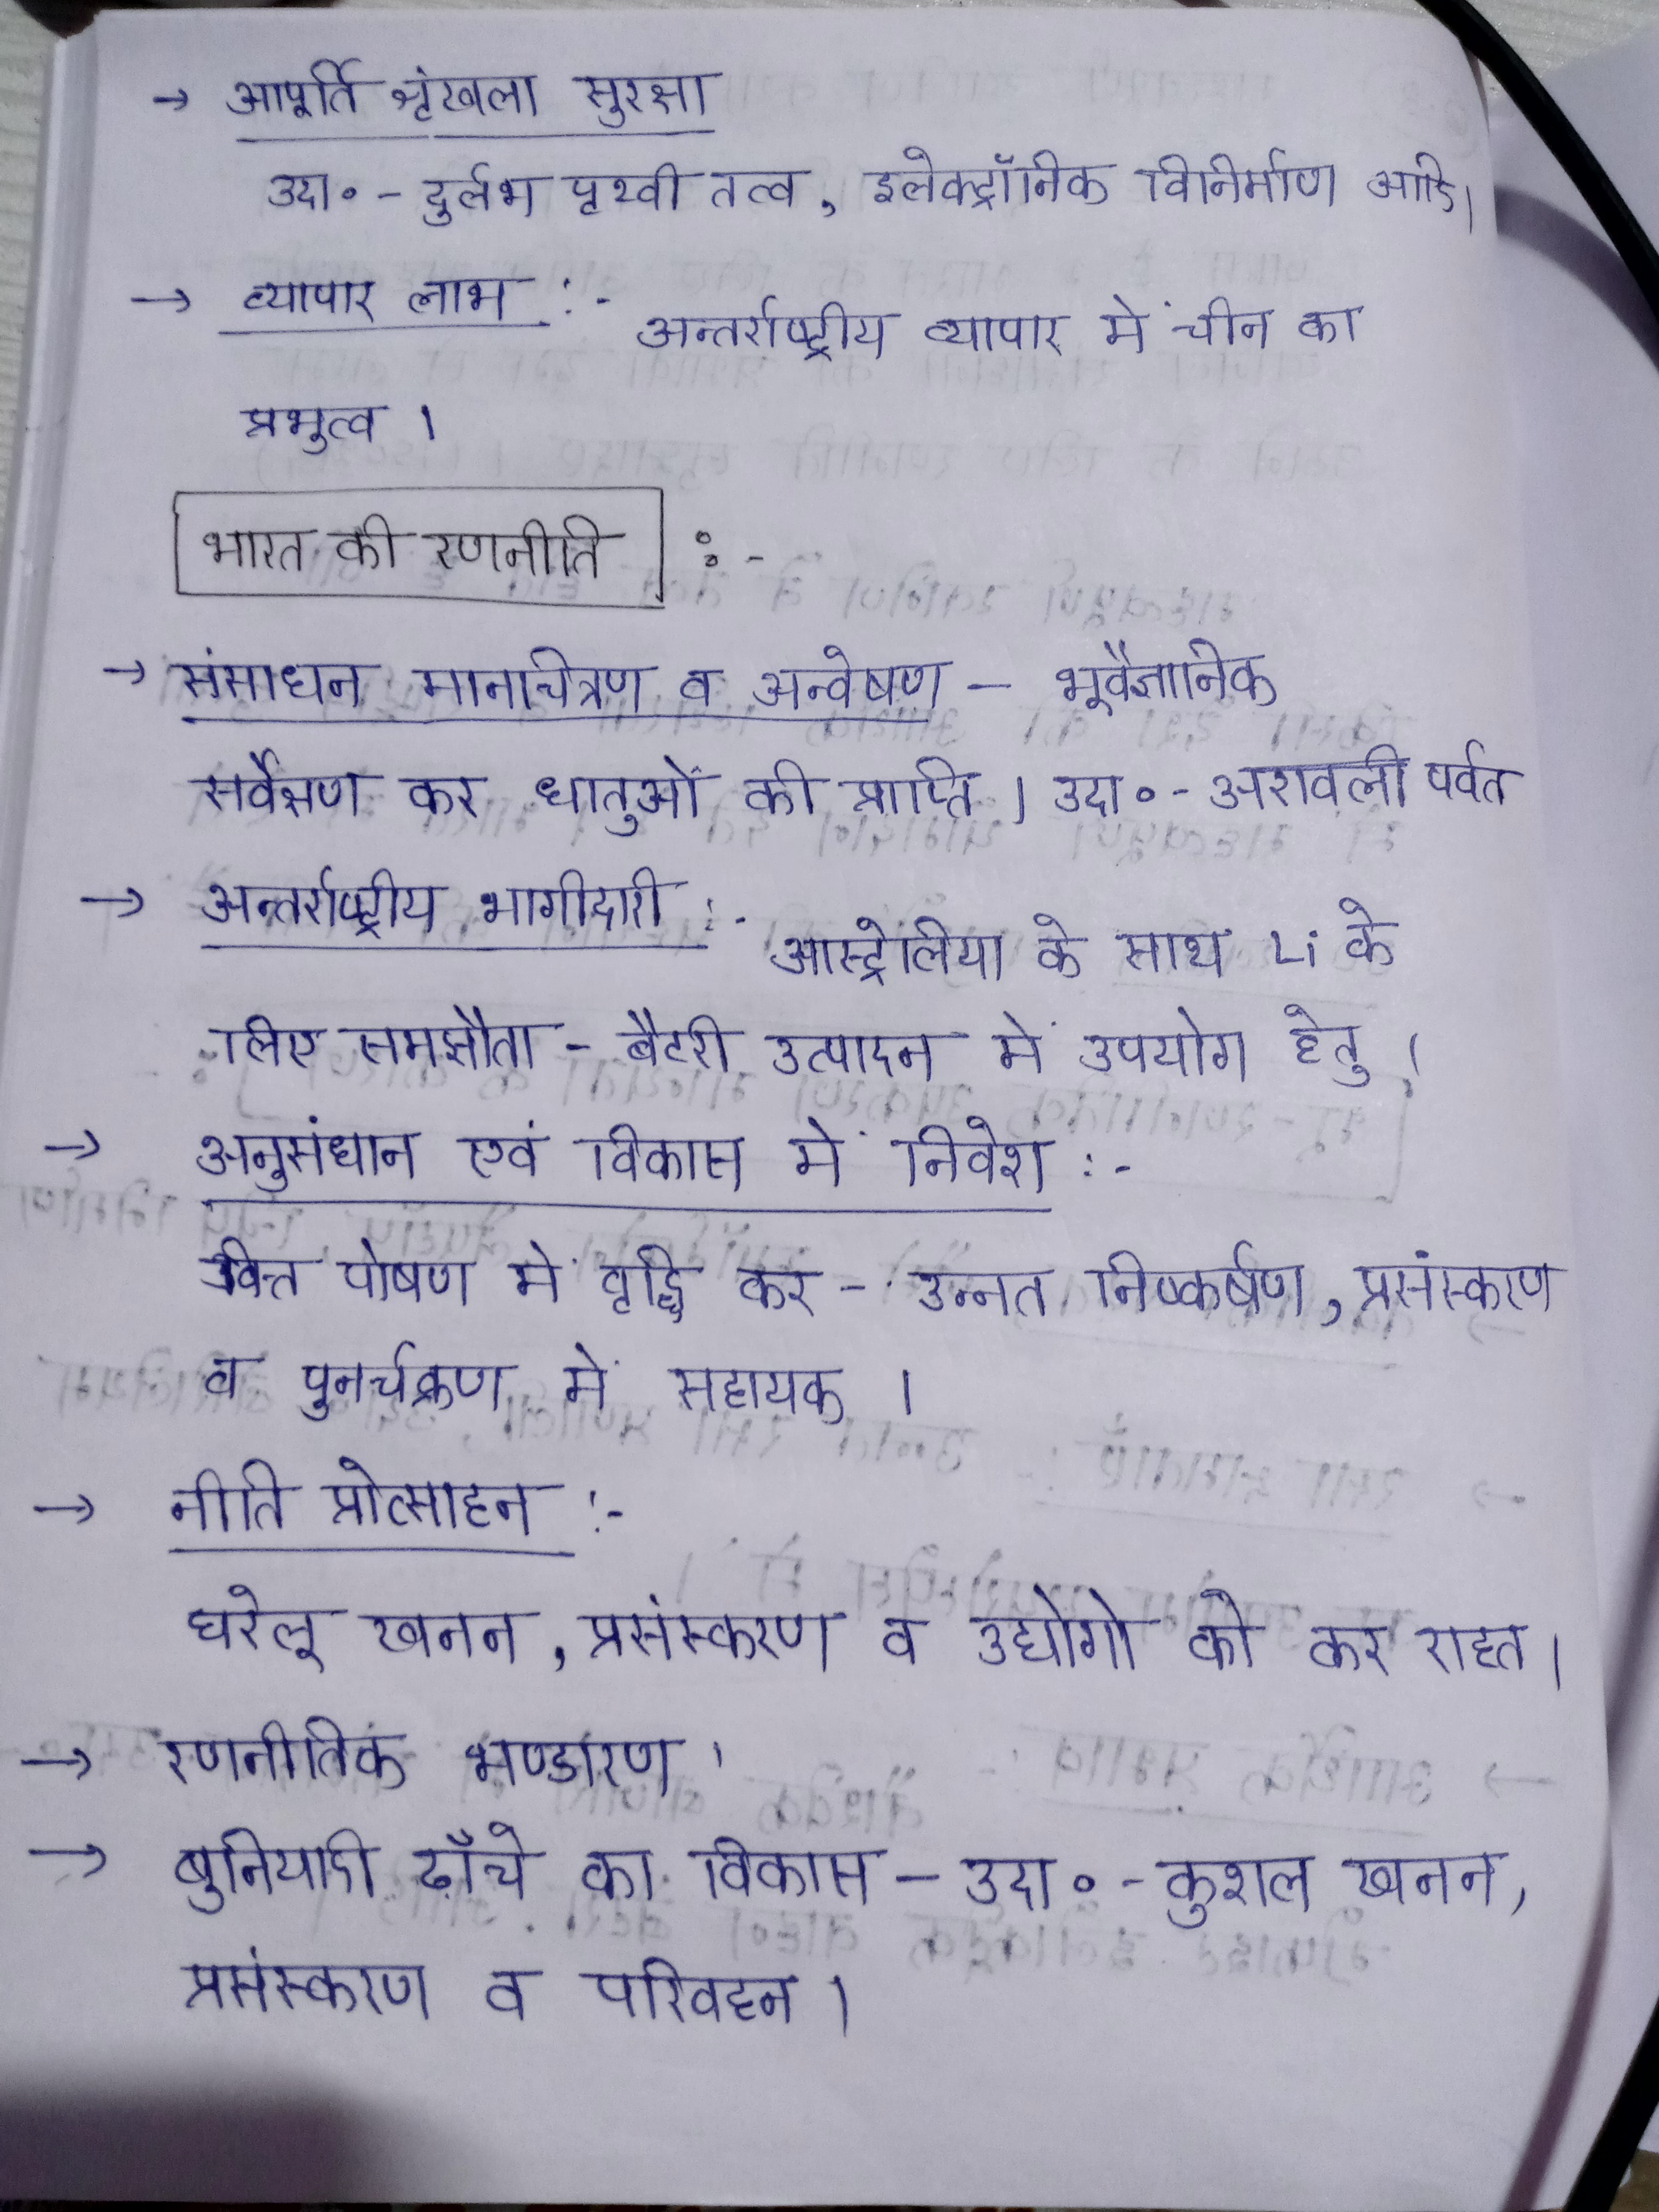 → आपूर्ति श्रृंखला सुरक्षा
उदा० - दुर्लभ पृथ्वी तत्व, इलेक्ट्रॉनिक विनिर्माण आदि।
→ व्यापार लाभ :- अन्तर्राष्ट्रीय व्यापार में चीन का
प्रभुत्व ।
भारत की रणनीति :-
→ संसाधन मानाचित्रण व अन्वेषण - भूवैज्ञानिक
सर्वेक्षण कर धातुओं की प्राप्ति । उदा० - अरावली पर्वत
→ अन्तर्राष्ट्रीय भागीदारी :- आस्ट्रेलिया के साथ Li के
लिए समझौता - बैटरी उत्पादन में उपयोग हेतु ।
→ अनुसंधान एवं विकास में निवेश :-
वित्त पोषण में वृद्धि कर - उन्नत निष्कर्षण, प्रसंस्करण
व पुनर्चक्रण में सहायक ।
→ नीति प्रोत्साहन :-
घरेलू खनन, प्रसंस्करण व उद्योगो को कर राहत ।
→ रणनीतिक भण्डारण ।
→ बुनियादी ढाँचे का विकास - उदा० - कुशल खनन,
प्रसंस्करण व परिवहन ।